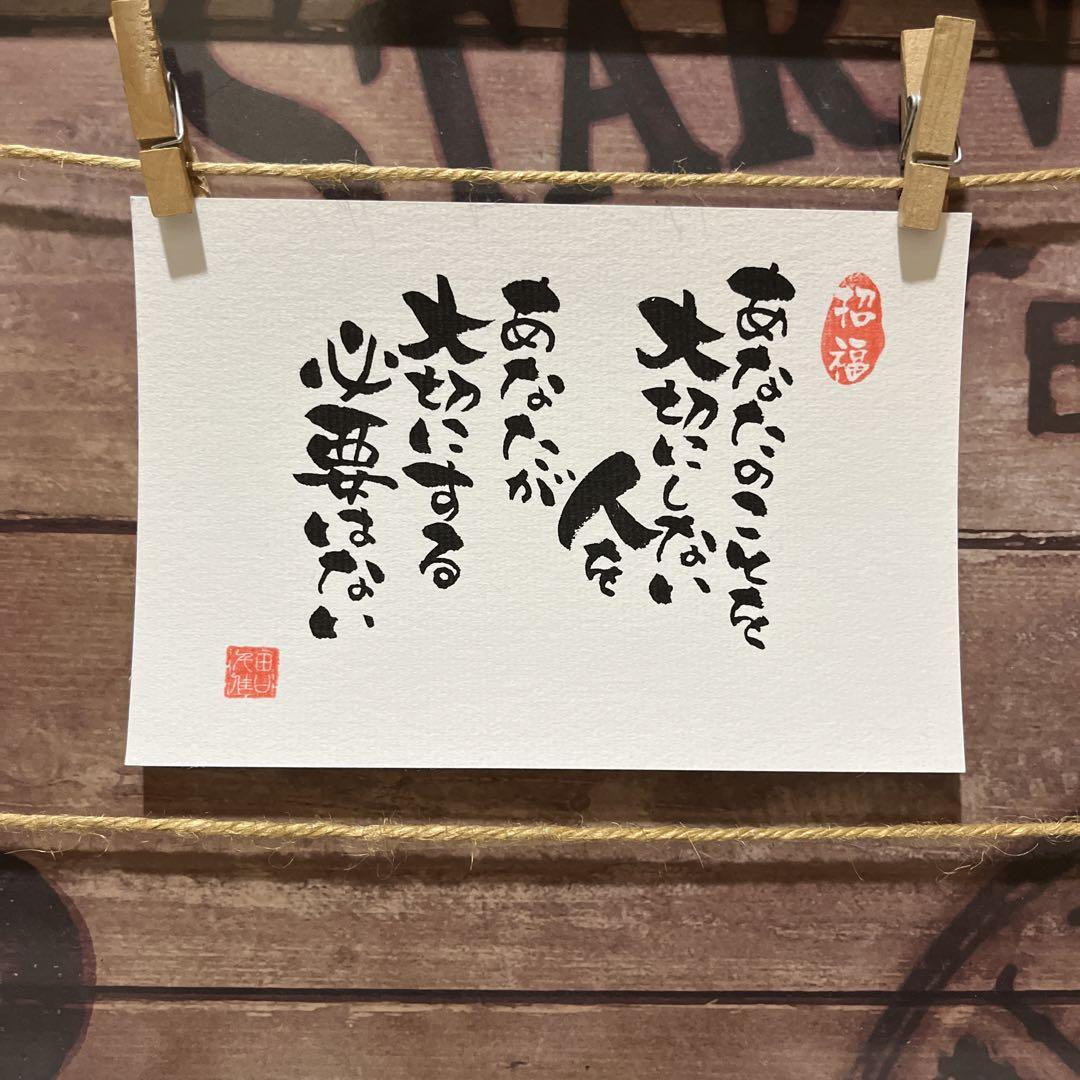 招福
あなたのことを
大切にしない
人を
あなたが
大切にする
必要はない
STAR